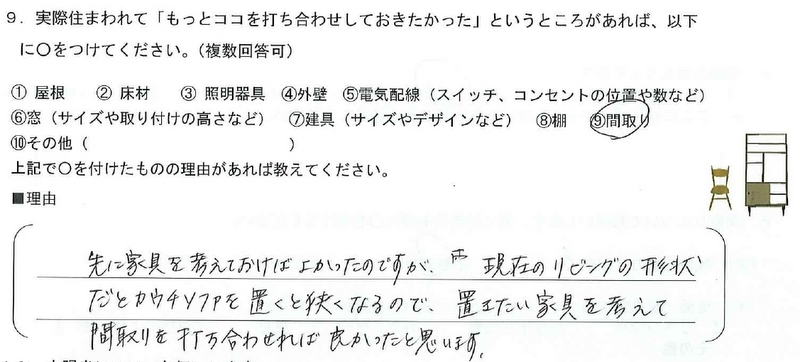 9．実際住まわれて「もっとココを打ち合わせしておきたかった」というところがあれば、以下
に○をつけてください。（複数回答可）
① 屋根　② 床材　③ 照明器具　④外壁　⑤電気配線（スイッチ、コンセントの位置や数など）
⑥窓（サイズや取り付けの高さなど）　⑦建具（サイズやデザインなど）　⑧棚　⑨間取り
⑩その他（　　　　　　　　　　　　）
上記で○を付けたものの理由があれば教えてください。
■理由
先に家具を考えておけばよかったのですが、現在のリビングの形状
だとカウチソファを置くと狭くなるので、置きたい家具を考えて
間取りを打ち合わせれば良かったと思います。